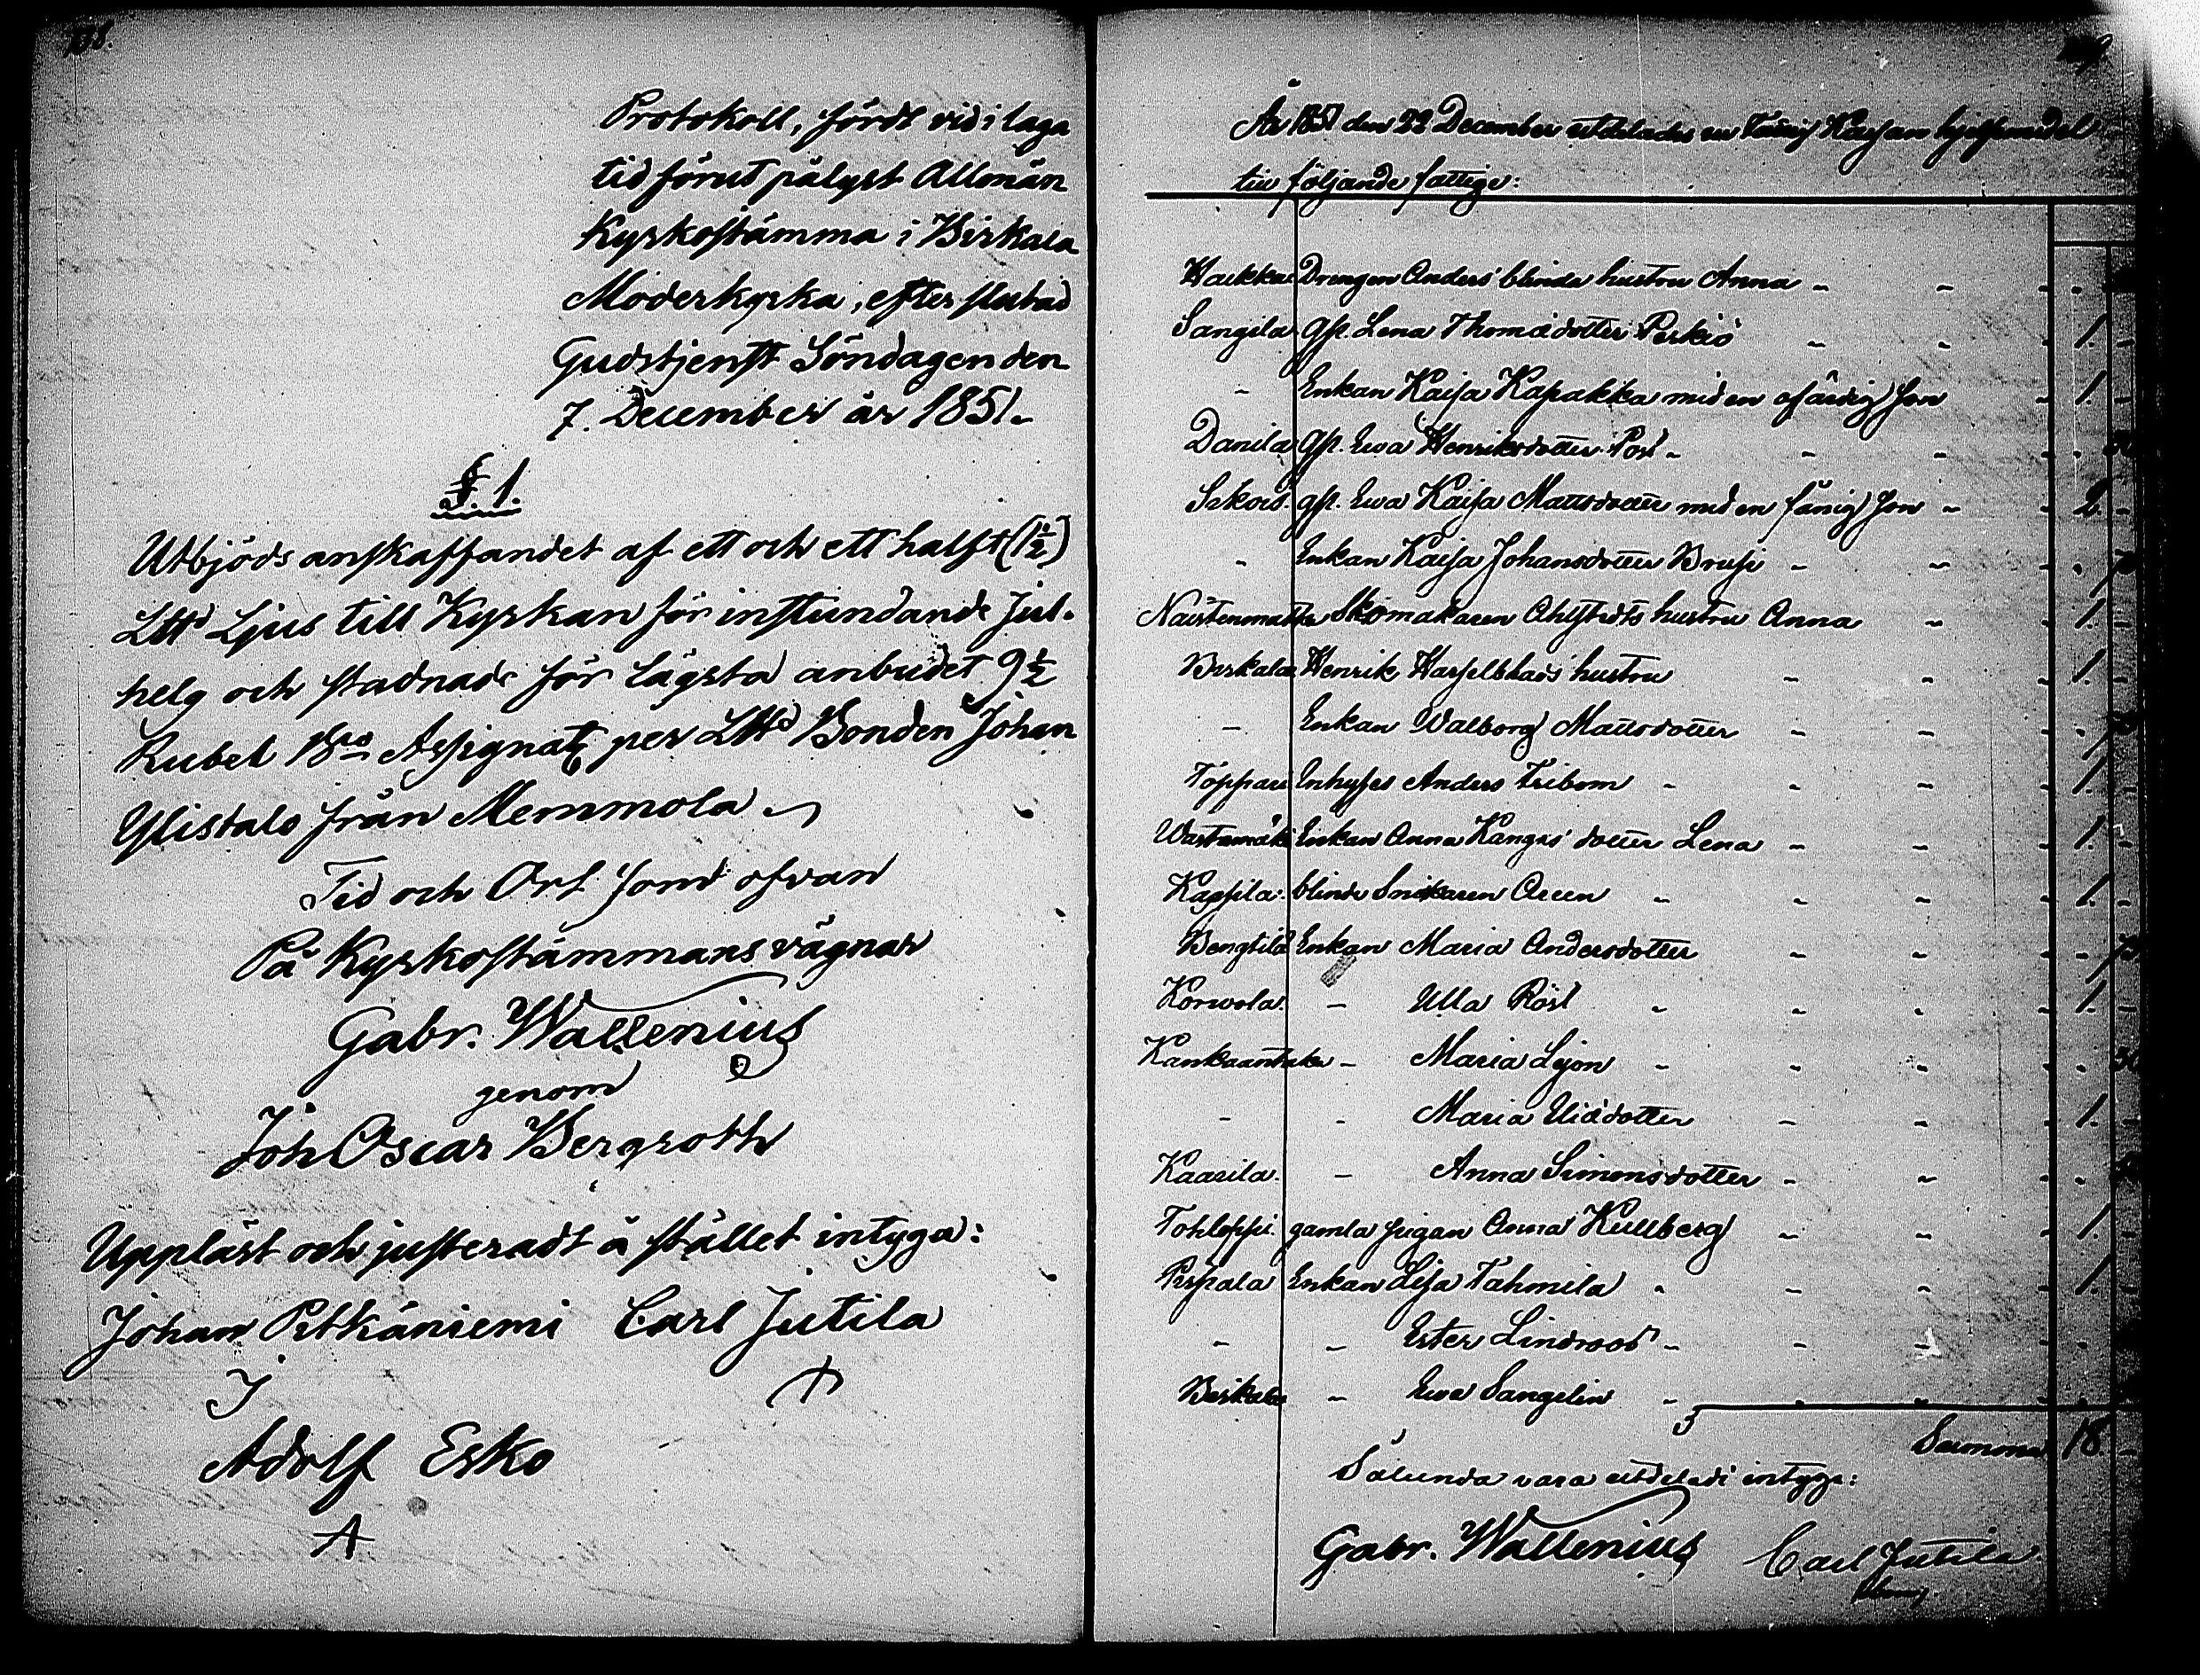 Protokoll, fördt vid i laga
tid förut pålyst Allmän
Kyrkostämma i Birkala
Moderkyrka, efter slutad
Gudstjenst Söndagen den
7. December år 1851.
§. 1.
Utbjöds anskaffandet af ett och ett halft (1½)
Lttd Ljus till Kyrkan för instundande Jul-
helg och stadnade för lägsta anbudet 9½
Rubel B:co Assignat. per Lttd Bonden Johan
Ylistalo från Memmola.
Tid och Ort som ofvan
På Kyrkostämmans vägnar
Gabr. Wallenius
genom
Joh Oscar Bergroth
Uppläst och justeradt å stället intyga:
Johan Pitkäniemi Carl Jutila
Adolf Esko
A
År 1851 den 22 December utdelades ur Fattig Kassan hjelpmedel
till följande fattige:
Haikka Drengen Anders' blinda hustru Anna - - - .
Sangila gft. Lena Thomædotter Perkiö - - - 1. -
- Enkan Kaisa Kapakka med en ofärdig Son - 1. -
Danila gft. Ewa Henriksdotter Pos - - - . 50
gft. Ewa Kaisa Mattsdotter med en fånig Son - - 2. -
- Enkan Kaisa Johansdotter Brusi - - - .
Naistenmatka Skomakaren Ahlstedts hustru Anna - - 1. -
Birkala Henrik Hasselblads hustru - - - 1. -
- Enkan Walborg Mattsdotter - - - .
Toppari Inhyses Anders Tribom - - - 1. -
Wastamäki Enkan Anna Kangas' dotter Lena - - - 1. -
Kassila: blinde Snikaren - - - 1. -
Bengtilä Enkan Maria Andersdotter - - - . 75
Korwola: - Ulla Röst - - - 1. -
Kankaantaka - Maria Lejon - - - . 50
- - Maria Eliædotter - - 1. -
Kaarila. - Anna Simonsdotter - - - .
Tohloppi. gamla pigan Anna Kullberg - - - 1. -
Pispala Enkan Lisa Tahmela - - - 1. -
- - Ester Lindroos - - - .
Birkala - Ewa Sangelin - - - .
Summa 18 -
Sålunda vara utdeladt intyga:
Gabr. Wallenius Carl Jutila